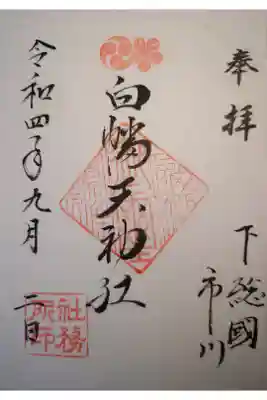 奉拝
下総國
市川
白幡天神社
令和四年九月
二日
社務
所印